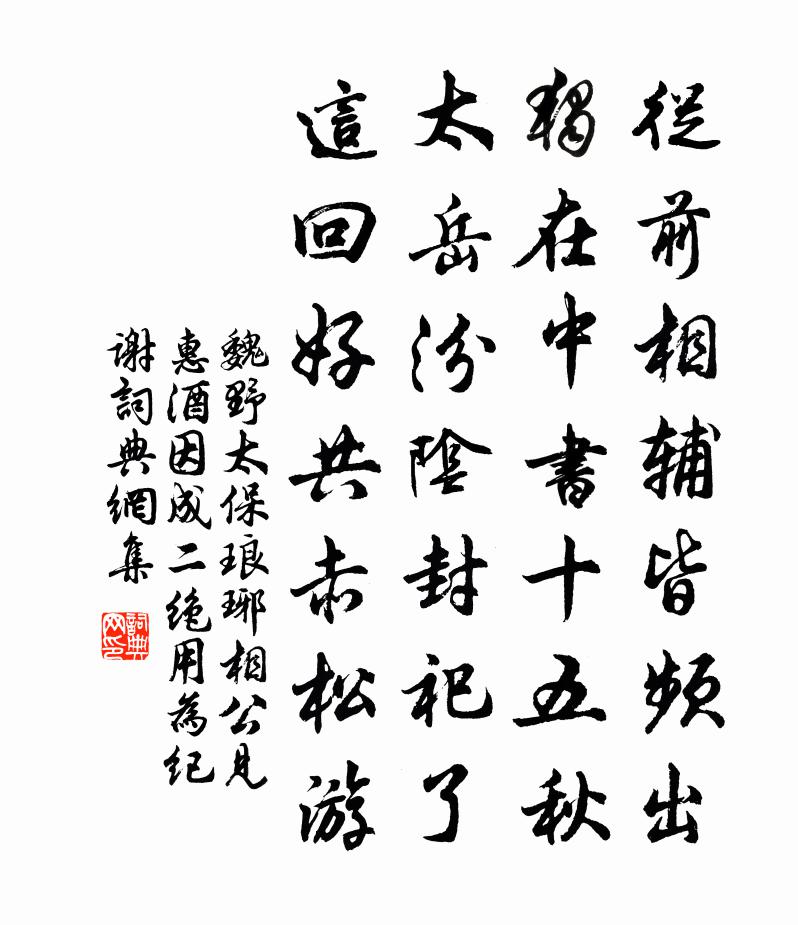 從前相輔皆頻出
獨在中書十五秋
太岳汾陰封祀了
這回好共赤松游
魏野太保琅琊相公見
惠酒因成二絶用為紀
謝詞典網集
詞典网印